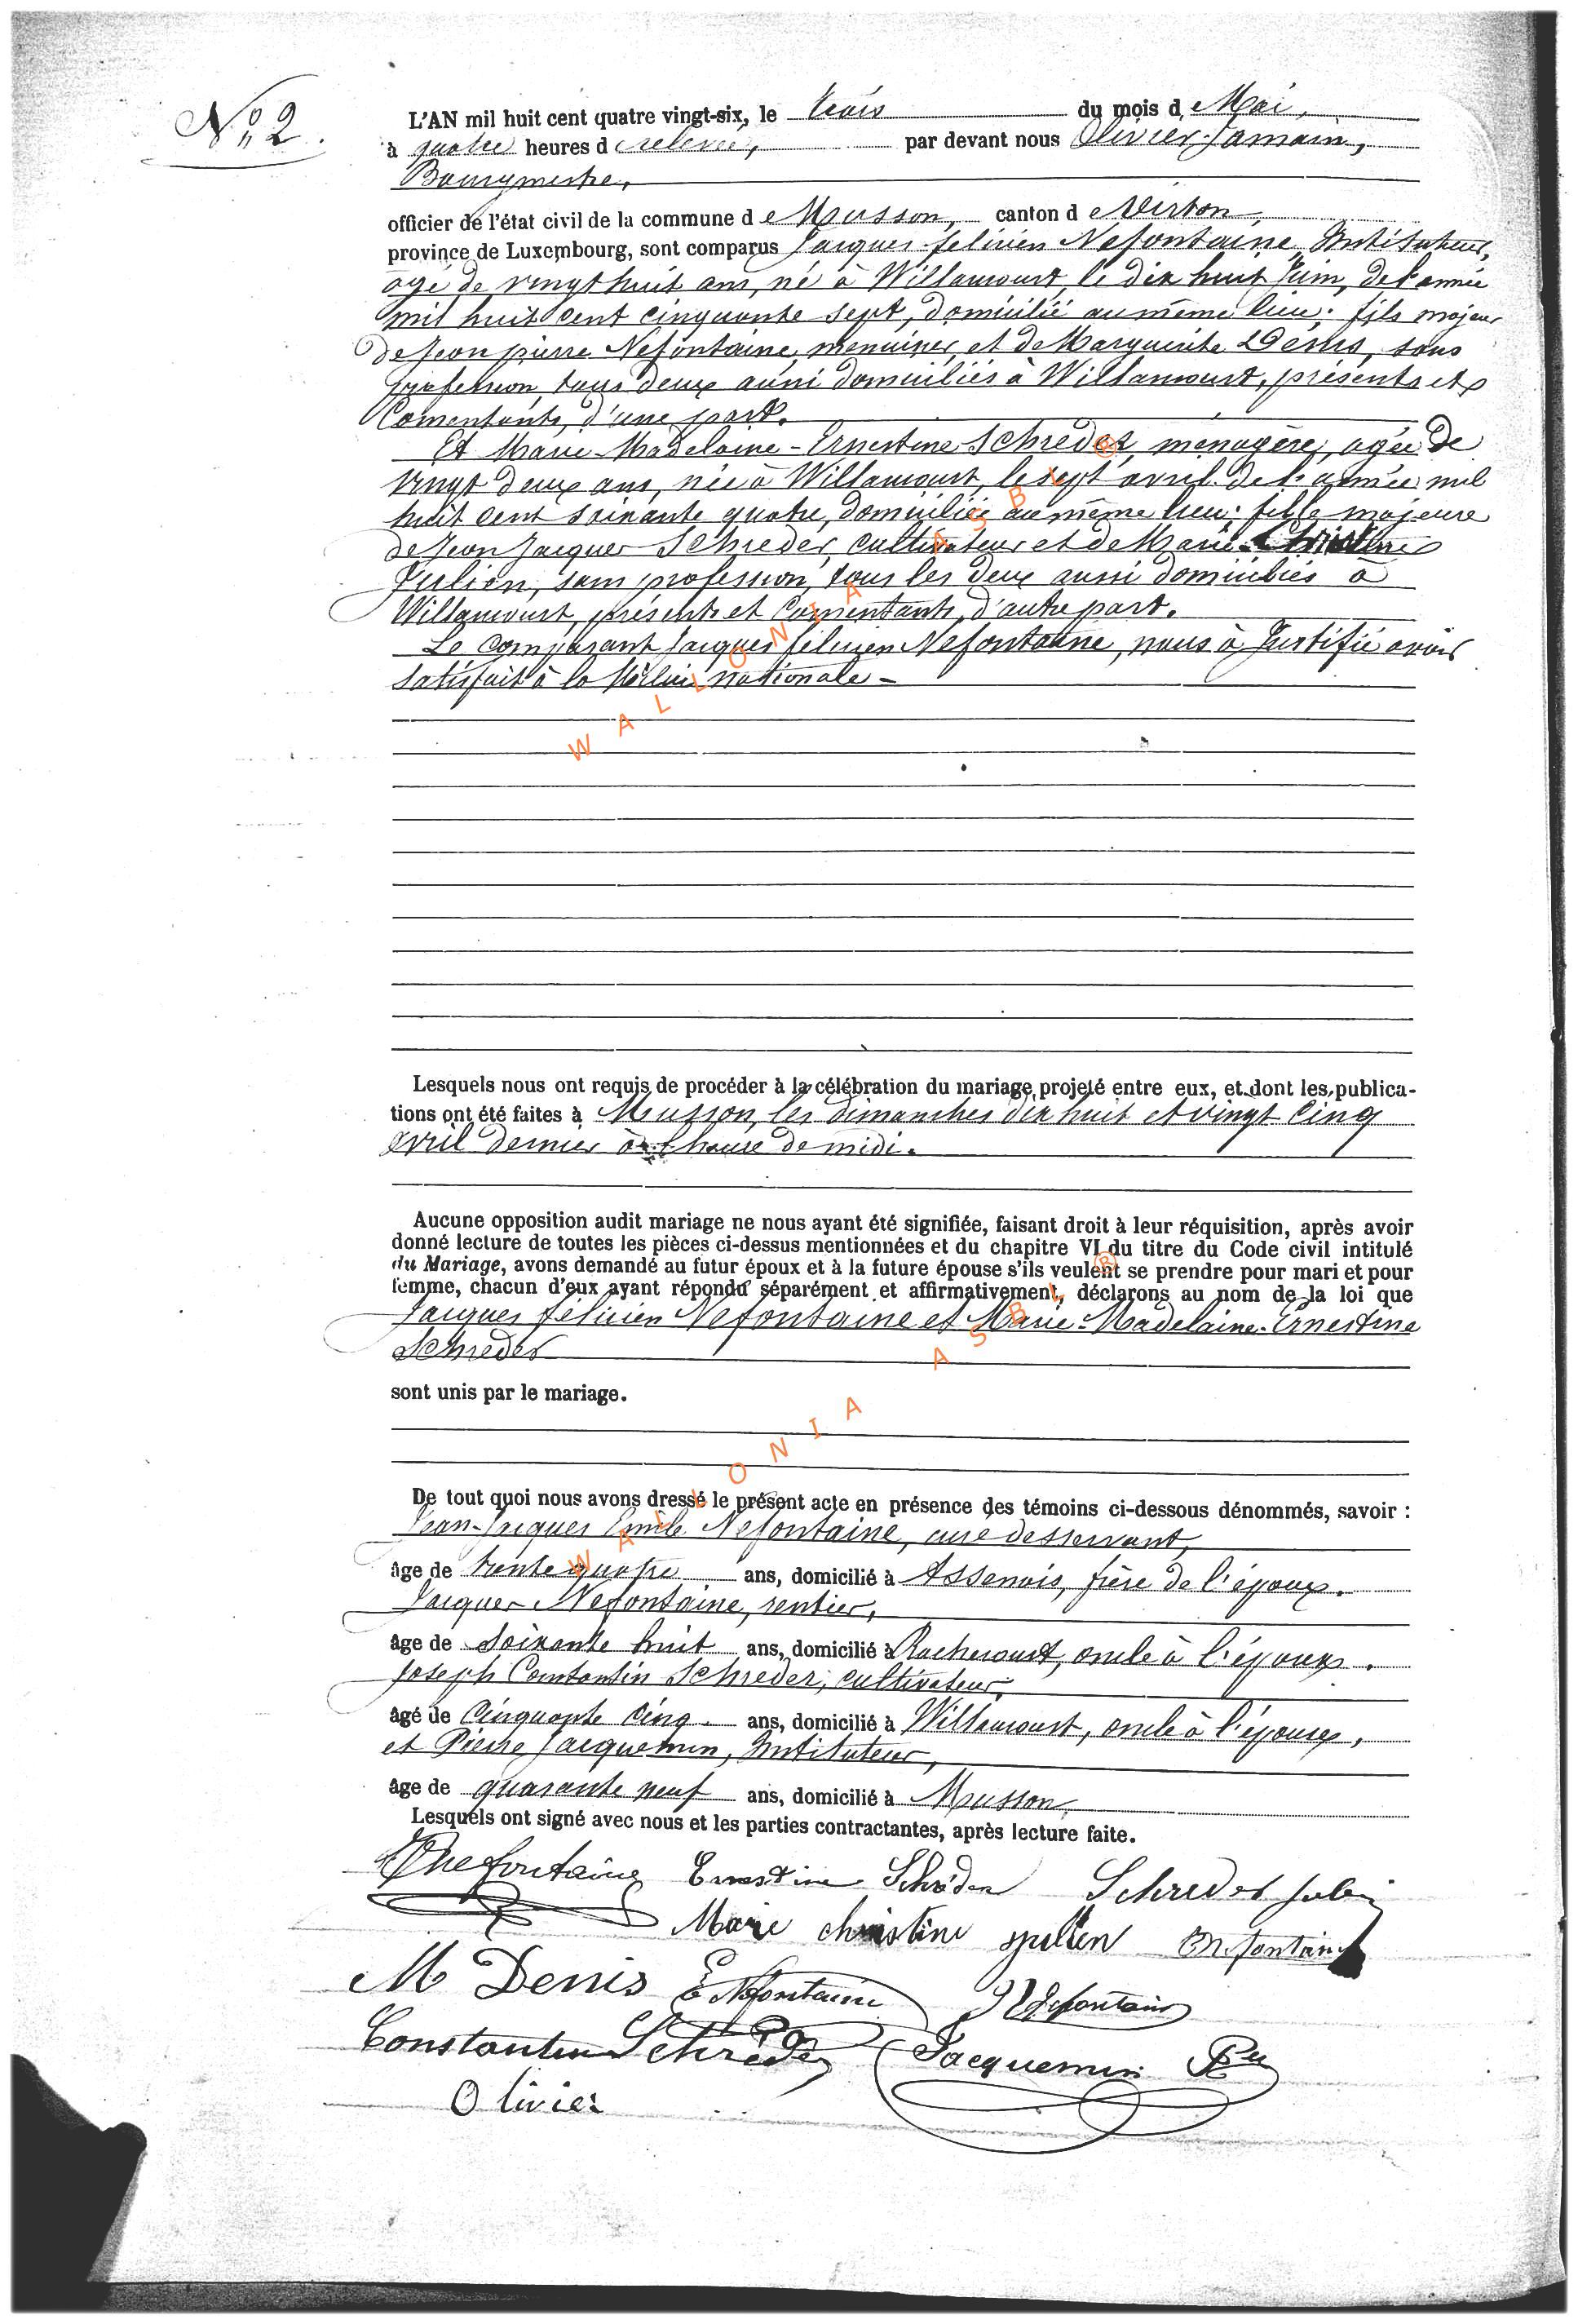 No 2.
L'AN mil huit cent quatre vingt-six, le trois du mois d e Mai,
à quatre heures d e relevée, par devant nous Olivier Jamain,
Bourgmestre,
officier de l'état civil de la commune d e Musson, canton d e Virton,
province de Luxembourg, sont comparus Jacques felicien Nefontaine, Instituteur,
agé de vingt huit ans, né à Willancourt, le dix huit Juin, de l'année
mil huit cent cinquante sept, domicilié au même lieu; fils majeur
de Jean pierre Nefontaine, menuisier, et de Marguerite Denis, sans
profession, tous deux aussi domiciliés à Willancourt, présents et
Consentants, d'une part.
Et Marie-Madelaine-Ernestine Schreder, menagère, agée de
vingt deux ans, née à Willancourt, le sept avril de l'année mil
huit cent soixante quatre, domiciliée au même lieu; fille majeure
de Jean Jacques Schreder, cultivateur et de Marie Christine
Julien, sans profession, tous les deux aussi domiciliés à
Willancourt, présents et Consentants, d'autre part.
Le comparant Jacques felicien Nefontaine, nous à Justifié avoir
satisfait à la Milice nationale -
Lesquels nous ont requis de procéder à la célébration du mariage projeté entre eux, et dont les publica-
tions ont été faites à Musson, les dimanches dix huit et vingt Cinq
avril dernier à l'heure de midi.
Aucune opposition audit mariage ne nous ayant été signifiée, faisant droit à leur réquisition, après avoir
donné lecture de toutes les pièces ci-dessus mentionnées et du chapitre VI du titre du Code civil intitulé
du Mariage, avons demandé au futur époux et à la future épouse s'ils veulent se prendre pour mari et pour
femme, chacun d'eux ayant répondu séparément et affirmativement, déclarons au nom de la loi que
Jacques félicien Nefontaine et Marie-Madelaine-Ernestine
Schreder
sont unis par le mariage.
De tout quoi nous avons dressé le présent acte en présence des témoins ci-dessous dénommés, savoir :
Jean-Jacques Emile Nefontaine, curé desservant,
âge de trente quatre ans, domicilié à Assenois, frère de l'époux.
Jacques Nefontaine, rentier,
âge de soixante huit ans, domicilié à Rachecourt, oncle à l'époux.
Joseph Constantin Schreder, cultivateur,
âgé de Cinquante Cinq ans, domicilié à Willancourt, oncle à l'épouse,
et Pierre Jacquemin, Instituteur,
âge de quarante neuf ans, domicilié à Musson
Lesquels ont signé avec nous et les parties contractantes, après lecture faite.
Nefontaine Ernestine Schréder Schreder Julien
Marie christine jullien Nefontaine
M Denis E Nefontaine J Nefontaine
Constantin Schréder Jacquemin Pre
Olivier
WALLONIA ASBL ®
WALLONIA ASBL ®